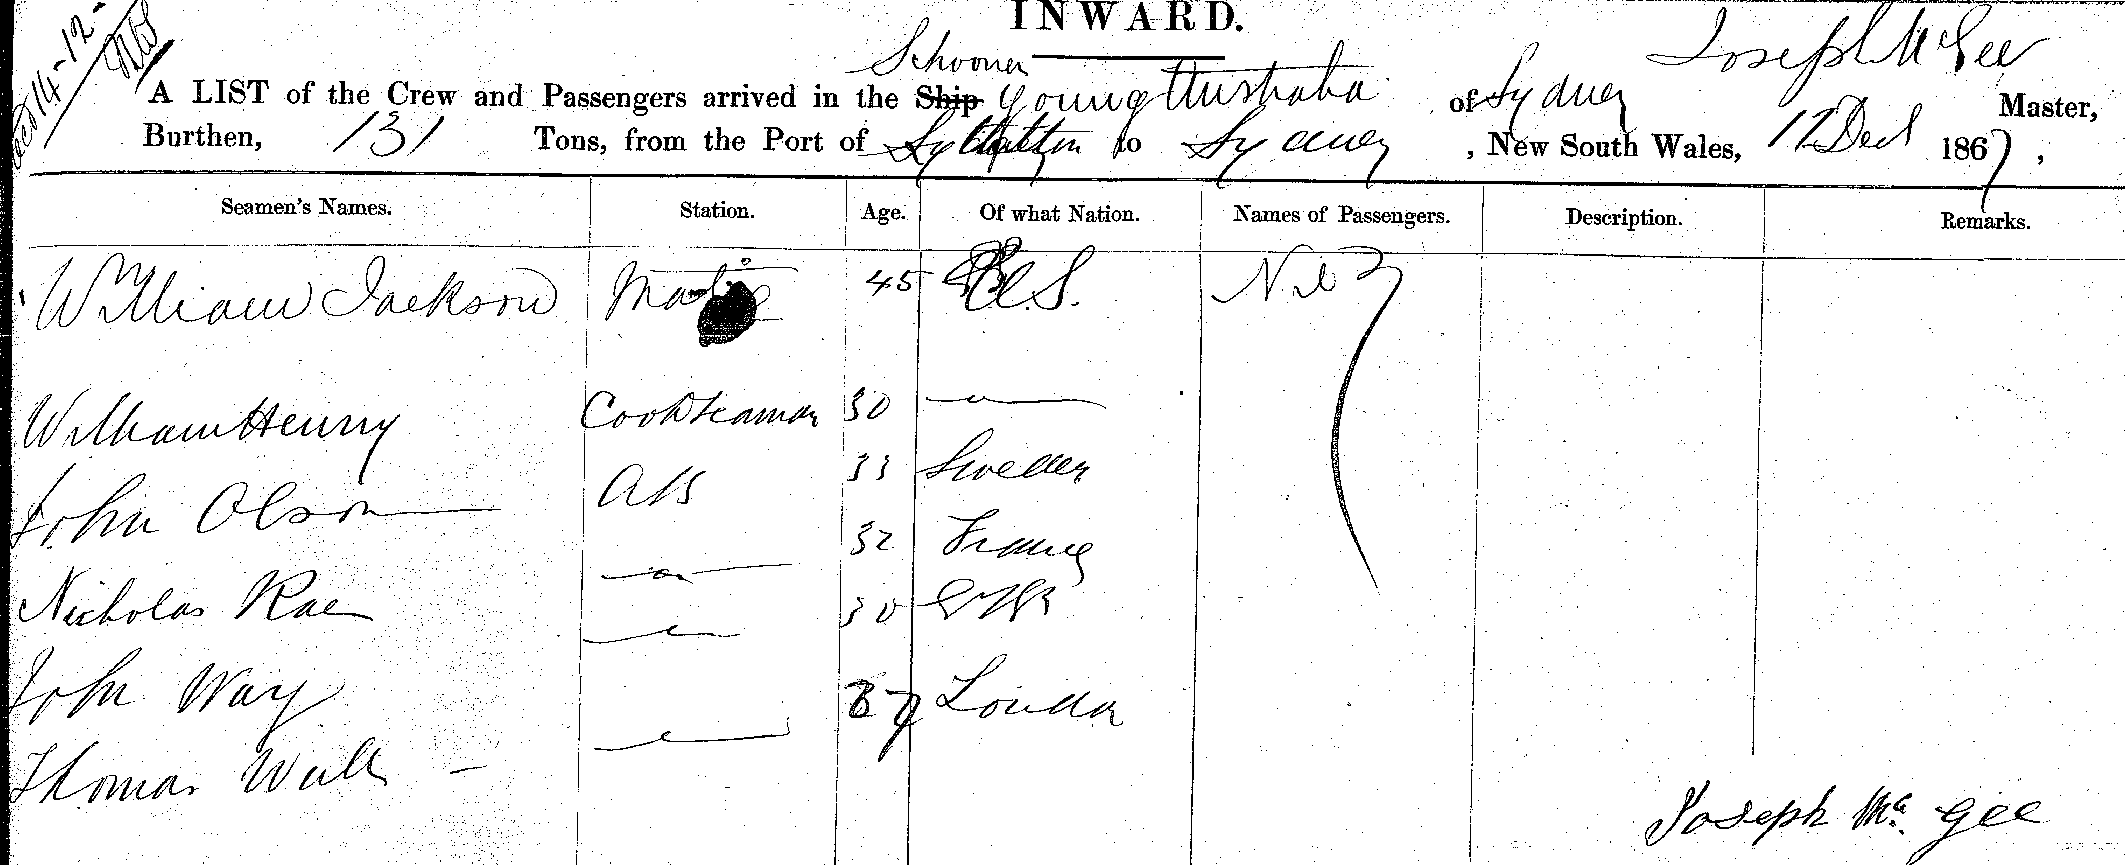 INWARD.
Joseph McGee
Schooner
A LIST of the Crew and Passengers arrived in the Ship Young Australia of Sydney Master,
Burthen, 131 Tons, from the Port of to Sydney, New South Wales, Decr 1867,
Seamen's Names. Station. Age. Of what Nation. Names of Passengers. Description. Remarks.
William Jackson Mate 45 U.S. Nil
William Henry Cook & Seaman 30 —"—
John Olson AB 33 Sweden
Nicholas Rae —"— 32 France
John Way —"— 30
Thomas Wall —"— 37 London
Joseph Mc. Gee